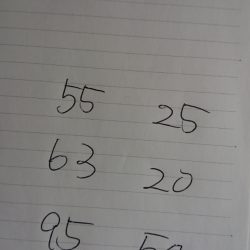 55 25
63 20
95